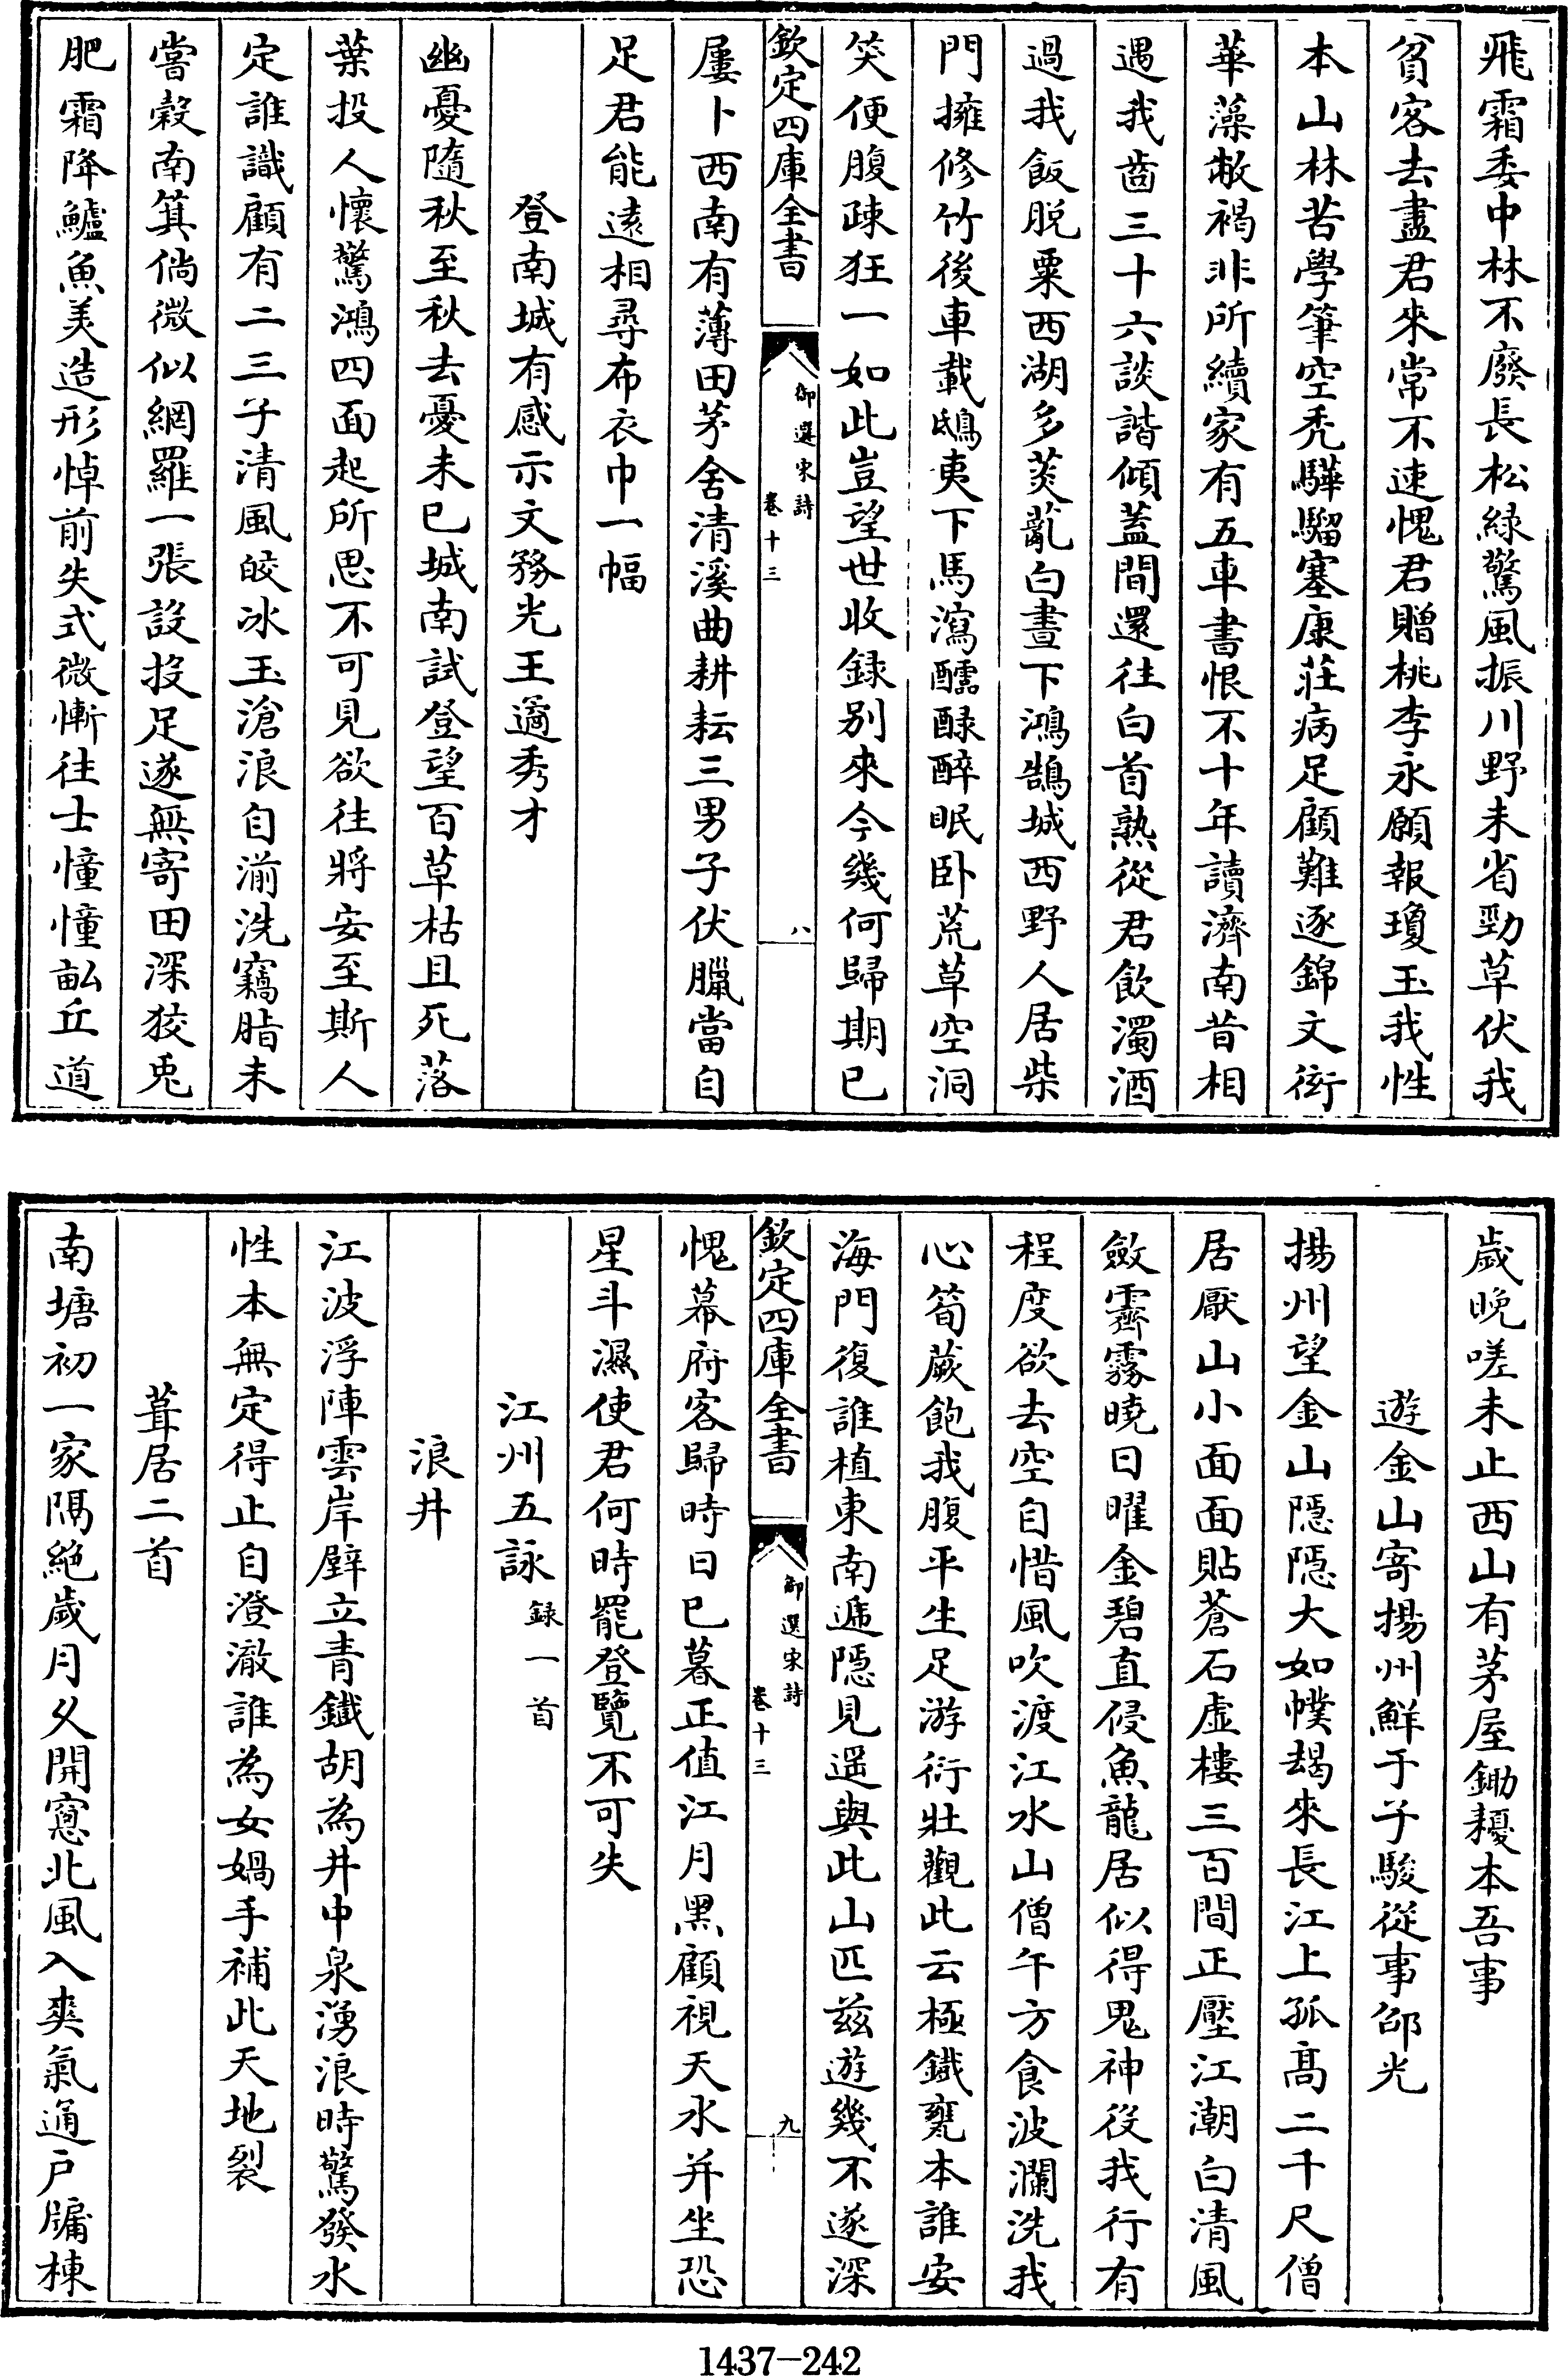 飛霜委中林不廢長松緑驚風振川野未省勁草伏我
貧客去盡君來常不速愧君贈桃李永願報瓊玉我性
本山林苦學筆空禿驊騮塞康莊病足顧難逐錦文衒
華藻敝褐非所續家有五車書恨不十年讀濟南昔相
遇我齒三十六談諧傾蓋間還往白首熟從君飲濁酒
過我飯脱粟西湖多芡薍白晝下鴻鵠城西野人居柴
門擁修竹後車載鴟夷下馬瀉醽醁醉眠卧荒草空洞
笑便腹疎狂一如此豈望世收録别來今幾何歸期已
欽定四庫全書
御選宋詩
卷十三
八
屢卜西南有薄田茅舍清溪曲耕耘三男子伏臘當自
足君能逺相尋布衣巾一幅
登南城有感示文務光王適秀才
幽憂隨秋至秋去憂未已城南試登望百草枯且死落
葉投人懷驚鴻四面起所思不可見欲往將安至斯人
定誰識顧有二三子清風皎冰玉滄浪自湔洗竊脂未
嘗穀南箕倘微似網羅一張設投足遂無寄田深狡兎
肥霜降鱸魚美造形悼前失式微慚往士憧憧畝丘道
歲晚嗟未止西山有茅屋鋤耰本吾事
遊金山寄揚州鮮于子駿從事邵光
揚州望金山隱隱大如幞朅來長江上孤髙二千尺僧
居厭山小面面貼蒼石虚樓三百間正壓江潮白清風
斂霽霧曉日曜金碧直侵魚龍居似得鬼神役我行有
程度欲去空自惜風吹渡江水山僧午方食波瀾洗我
心筍蕨飽我腹平生足游衍壯觀此云極鐵甕本誰安
海門復誰植東南遞隱見遥與此山匹兹遊幾不遂深
欽定四庫全書
御選宋詩
卷十三
九
愧幕府客歸時日已暮正值江月黑顧視天水并坐恐
星斗濕使君何時罷登覽不可失
江州五詠録一首
浪井
江波浮陣雲岸壁立青鐵胡為井中泉湧浪時驚發水
性本無定得止自澄澈誰為女媧手補此天地裂
葺居二首
南塘初一家隔絶歲月久開窻北風入爽氣通户牖棟
1437-242